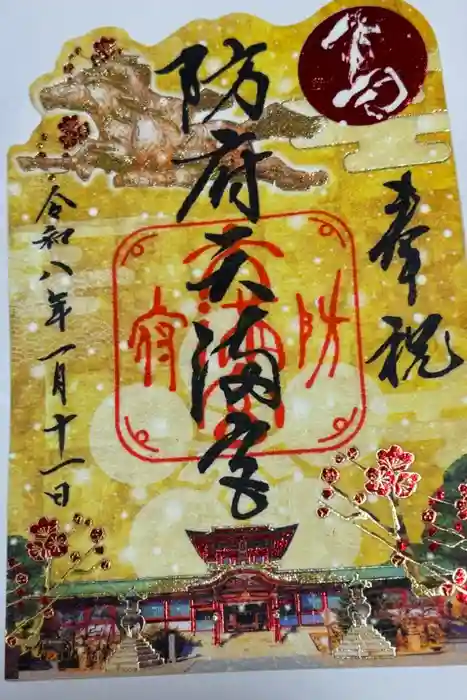 奉祝
防府天満宮
令和八年一月十一日